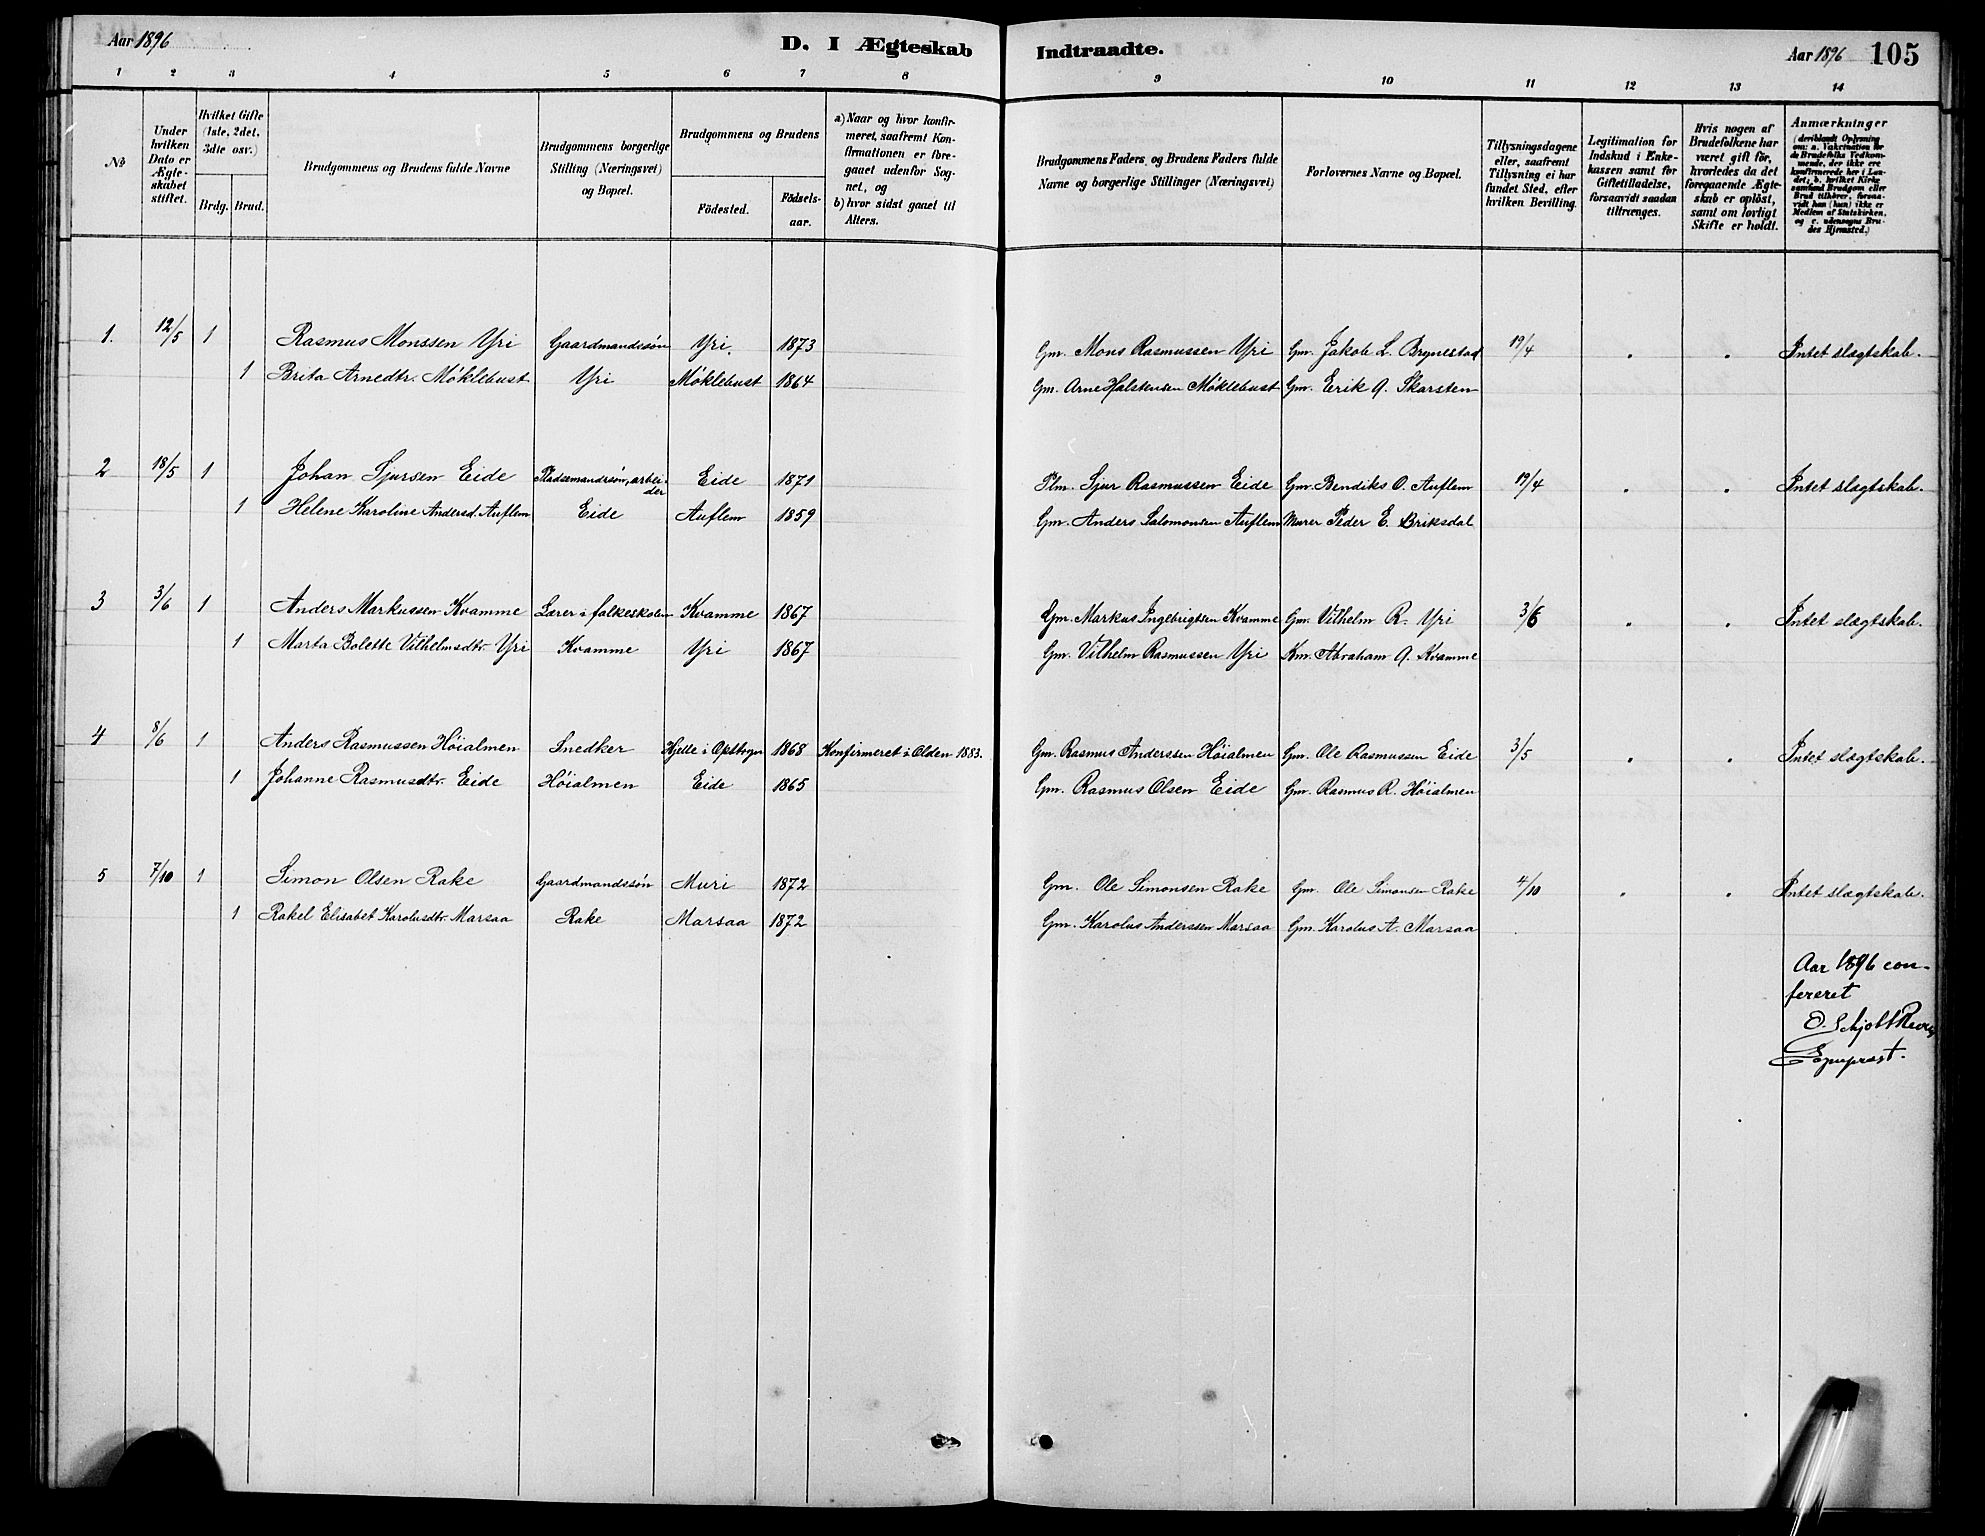 Aar 1896
D. I Ægteskab
Indtraadte.
Aar 1896 105
1 2 3 4 5 6 7 8 9 10 11 12 13 14
No
Under hvilken Dato er Ægteskabet stiftet.
Hvilket Gifte (1ste, 2det, 3die osv.)
Brdg. Brud.
Brudgommens og Brudens fulde Navne
Brudgommens borgerlige Stilling (Næringsvei) og Bopæl.
Brudgommens og Brudens
Födested.
Födselsaar.
a) Naar og hvor konfirmeret, saafremt Konfirmationen er foregaaet udenfor Sognet, og
b) hvor sidst gaaet til Alters.
Brudgommens Faders og Brudens Faders fulde Navne og borgerlige Stillinger (Næringsvei)
Forlovernes Navne og Bopæl.
Tillysningsdagene eller, saafremt Tillysning ei har fundet Sted, efter hvilken Bevilling.
Legitimation for Indskud i Enkekassen samt for Giftetilladelse, forsaavidt saadan tiltrænges.
Hvis nogen af Brudefolkene har været gift för, hvorledes da det foregaaende Ægteskab er oplöst, samt om lovligt Skifte er holdt.
Anmærkninger
(deriblandt Oplysning om: a. Vakcination for de Brudefolks Vedkommende, der ikke ere konfirmerede her i Landet; b. hvilket Kirkesamfund Brudgom eller Brud tilhörer, forsaavidt han (hun) ikke er Medlem af Statskirken, og c. udensogns Brudes Hjemsted.)
1. 12/5 1 Rasmus Monssen Yri Gaardmandssøn Yri. 1873 Gm. Mons Rasmussen Yri Gm. Jakob L. Brynestad 19/4 " " Intet slægtskab.
1 Brita Arnedtr. Møklebust Yri Møklebust 1864 Gm. Arne Halstensen Møklebust Gm. Eerik A. Skarsten
2 18/5 1 Johan Sjursen Eide Pladsemandssøn, arbeider Eide 1871 Plm. Sjur Rasmussen Eide Gm. Bendiks O. Auflem 19/4 " " Intet slægtskab.
1 Helene Karoline Andersd. Auflem Eide Auflem 1859 Gm. Anders Salomonsen Auflem Murer Peder E. Briksdal
3 3/6 1 Anders Markussen Kvamme Lærer i folkeskolen Kvamme 1867 Gm. Markus Ingebrigtsen Kvamme Gm. Vilhelm R. Yri 3/6 " " Intet slægtskab.
1 Marta Bolette Vilhelmsdtr. Yri Kvamme Yri 1867 Gm. Vilhelm Rasmussen Yri Km. Abraham A. Kvamme
4 8/6 1 Anders Rasmussen Høialmen Snedker Hjelle i Opstryn 1868 Konfirmeret i Olden 1883. Gm. Rasmus Anderssen Høialmen Gm. Ole Rasmussen Eide 3/5 " " Intet slægtskab.
1 Johanne Rasmusdtr. Eide Høialmen Eide 1865 Gm. Rasmus Olsen Eide Gm. Rasmus R. Høialmen
5 7/10 1 Simon Olsen Rake Gaardmandssøn Muri 1872 Gm. Ole Simonsen Rake Gm. Ole Simonsen Rake 4/10 " " Intet slægtskab.
1 Rakel Elisabet Karolusdtr. Marsaa Rake Marsaa 1872 Gm. Karolus Anderssen Marsaa Gm. Karolus A. Marsaa
Aar 1896 con-
fereret